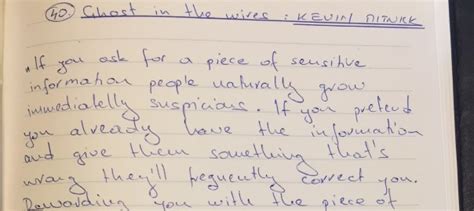 40. Ghost in the wires : KEVIN MITNICK
. If you ask for a piece of sensitive
information people naturally grow
immediatelly suspicious. If you pretend
you already have the information
and give them something that's
wrong they'll frequently correct you.
Rewarding you with the piece of